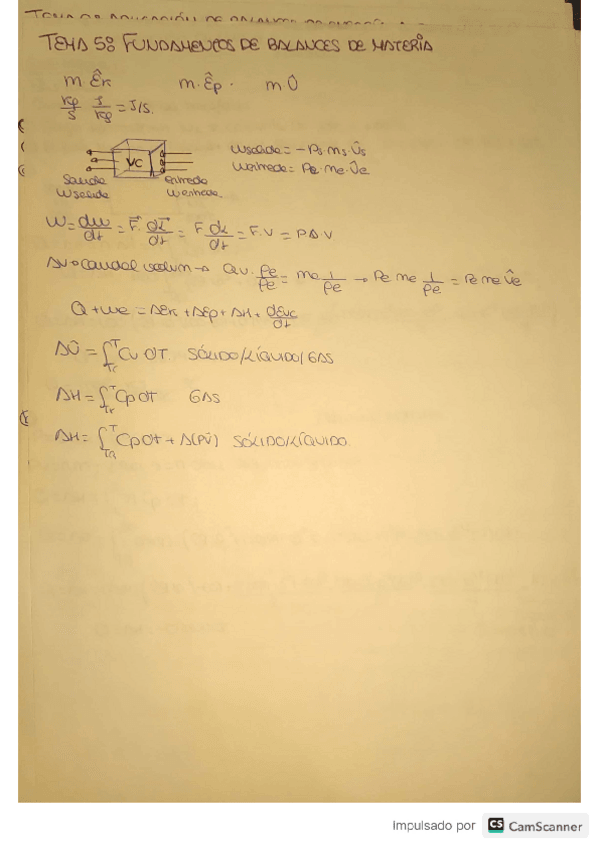 TEMA 5: FUNDAMENTOS DE BALANCES DE MATERIA
m Êk m.Êp. m Û
kg/s J/kg = J/s.
Wsalida = -Ps.ms.V̂s
VC
Wentrada = Pe.me.V̂e
Salida entrada
Wsalida Wentrada.
W = dw/dt = F. dx/dt = F dx/dt = F.V = PΔV
ΔV→caudal volum→ Qv. ρe/ρe = me 1/ρe → Pe me 1/ρe = Pe me V̂e
Q + we = ΔEk + ΔEp + ΔH + dEvc/dt
ΔÛ = ∫Tr T Cv dT. SÓLIDO/LÍQUIDO/GAS
ΔH = ∫Tr T Cp dt GAS
ΔH = ∫TR T Cp dt + Δ(PV̂) SÓLIDO/LÍQUIDO.
Impulsado por CS CamScanner